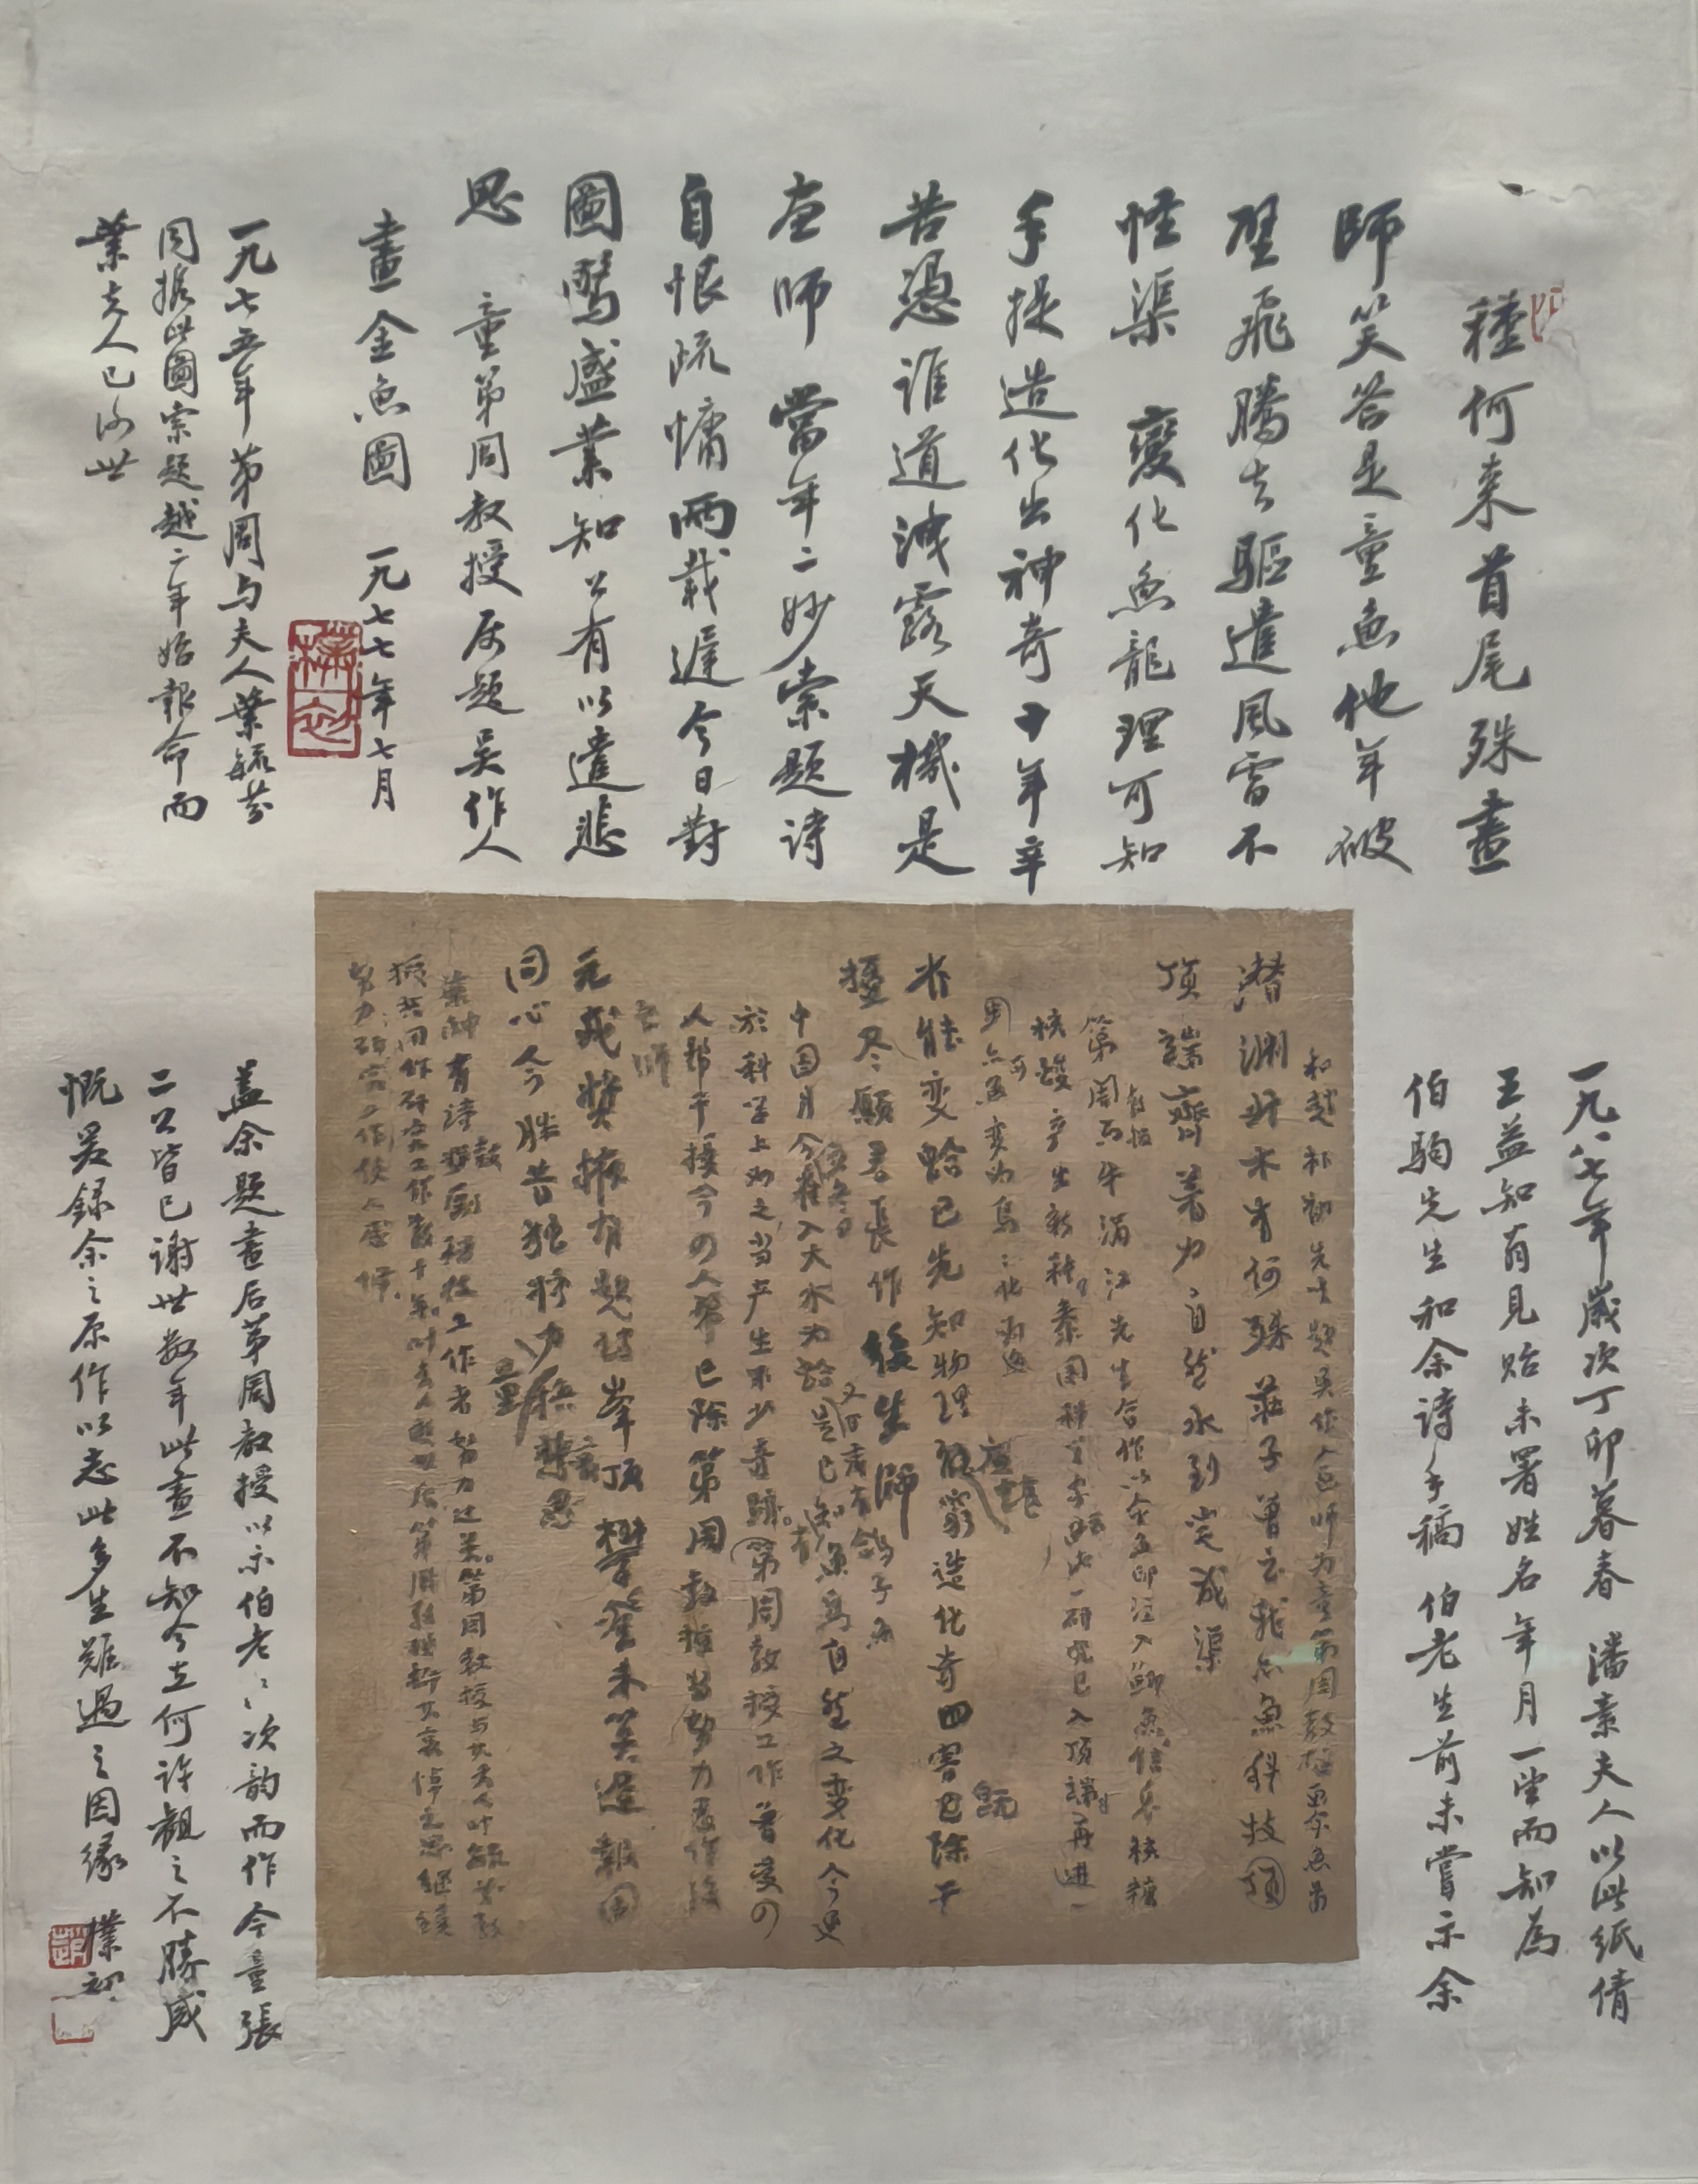 種何來首尾殊畫
師笑答是童魚他年破
壁飛騰去驅遣風雷不
怪渠 變化魚龍理可知
手提造化出神奇十年辛
苦憑誰道洩露天機是
画師 當年二妙索題詩
自恨疏慵兩載遲今日對
圖驚盛業知公有以遣悲
思 童第周教授屬題吳作人
畫金魚圖 一九七七年七月
樸初
一九七五年第周与夫人葉毓芬
同携此圖索題越二年始報命而
葉夫人已謝世
一九八七年歲次丁卯暮春 潘素夫人以此紙倩
王益知翁見貽未署姓名年月一望而知為
伯駒先生和余詩手稿 伯老生前未嘗示余
和趙朴初先生題吳作人画師为童第周教授画金魚圖
潛淵時木有何殊莊子曾云我点魚科技頂
頂端齊着力自然水到定成渠
第周教授与牛满江先生合作以金魚卵注入鲫魚信息核糖
核酸產生新种美国科学家 此一研究已入頂端再進一
步能變蛤已先知物理 窮造化奇四害已除干
擾尽願君長作後生師
中国月令雀入大水为蛤 魚鳥自然之变化今更
於科学上为之当产生不少奇跡第周教授工作曾受四
人帮干擾今四人帮已除第周教授当努力 作後
生師
元戎獎掖有題詩峯頂攀登未算遲報国
同心今勝昔 将力量移悲思
葉帥有詩鼓勵科技工作者努力达关第周教授与其夫人叶毓芬教
授共同作研究工作数十年叶夫人 第周教授 其哀悼之思继续
努力研究工作使人感佩
盖余題畫后第周教授以示伯老伯老次韵而作今童張
二公皆已謝世数年此畫不知今在何許觀之不勝感
慨爰録余之原作以志此多生難遇之因緣 樸初
趙